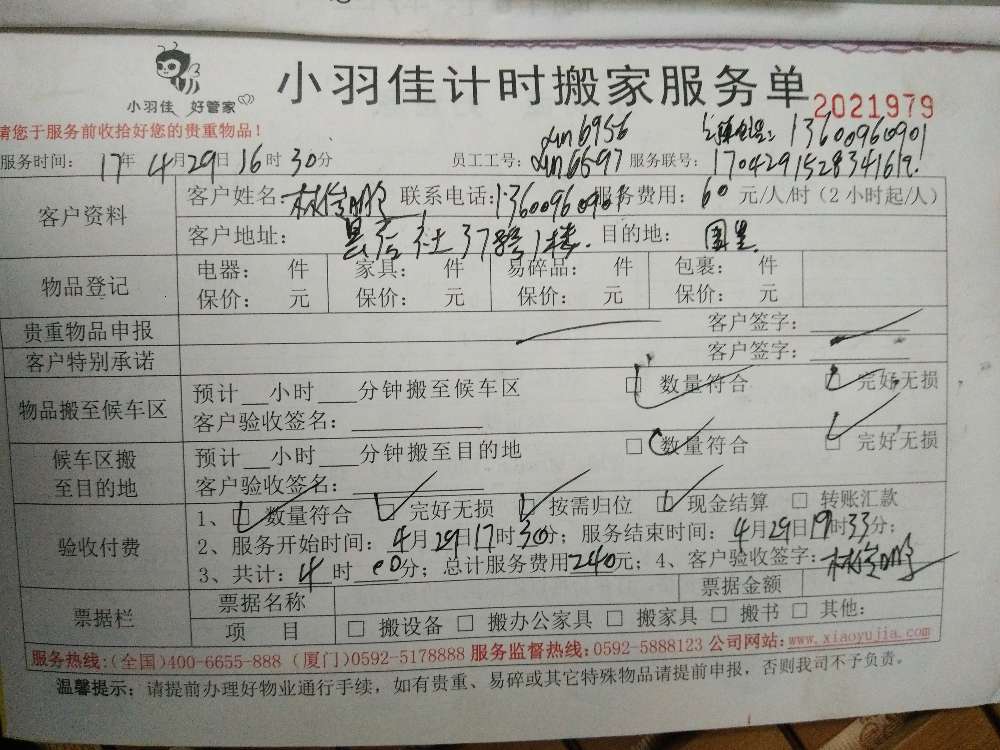 小羽佳 好管家
小羽佳计时搬家服务单
2021979
请您于服务前收拾好您的贵重物品！
6956
13600960901
服务时间： 17年4月29日16时30分 员工工号： 6697 服务联号：
客户资料 客户姓名： 联系电话：13600960901 服务费用：60元/人/时（2小时起/人）
客户地址： 后社37号1楼. 目的地：
物品登记 电器： 件 家具： 件 易碎品： 件 包裹： 件
保价： 元 保价： 元 保价： 元 保价： 元
贵重物品申报 客户签字：
客户特别承诺 客户签字：
物品搬至候车区 预计__小时___分钟搬至候车区 □ 数量符合 □ 完好无损
客户验收签名：
候车区搬至目的地 预计__小时___分钟搬至目的地 □ 数量符合 □ 完好无损
客户验收签名：
验收付费 1、□ 数量符合 □ 完好无损 □ 按需归位 □ 现金结算 □ 转账汇款
2、服务开始时间：4月29日17时30分；服务结束时间：4月29日19时33分；
3、共计：4时00分；总计服务费用240元；4、客户验收签字：
票据栏 票据名称 票据金额
项 目 □ 搬设备 □ 搬办公家具 □ 搬家具 □ 搬书 □ 其他：
服务热线：（全国）400-6655-888（厦门）0592-5178888 服务监督热线：0592-5888123 公司网站：www.xiaoyujia.com
温馨提示：请提前办理好物业通行手续，如有贵重、易碎或其它特殊物品请提前申报，否则我司不予负责。